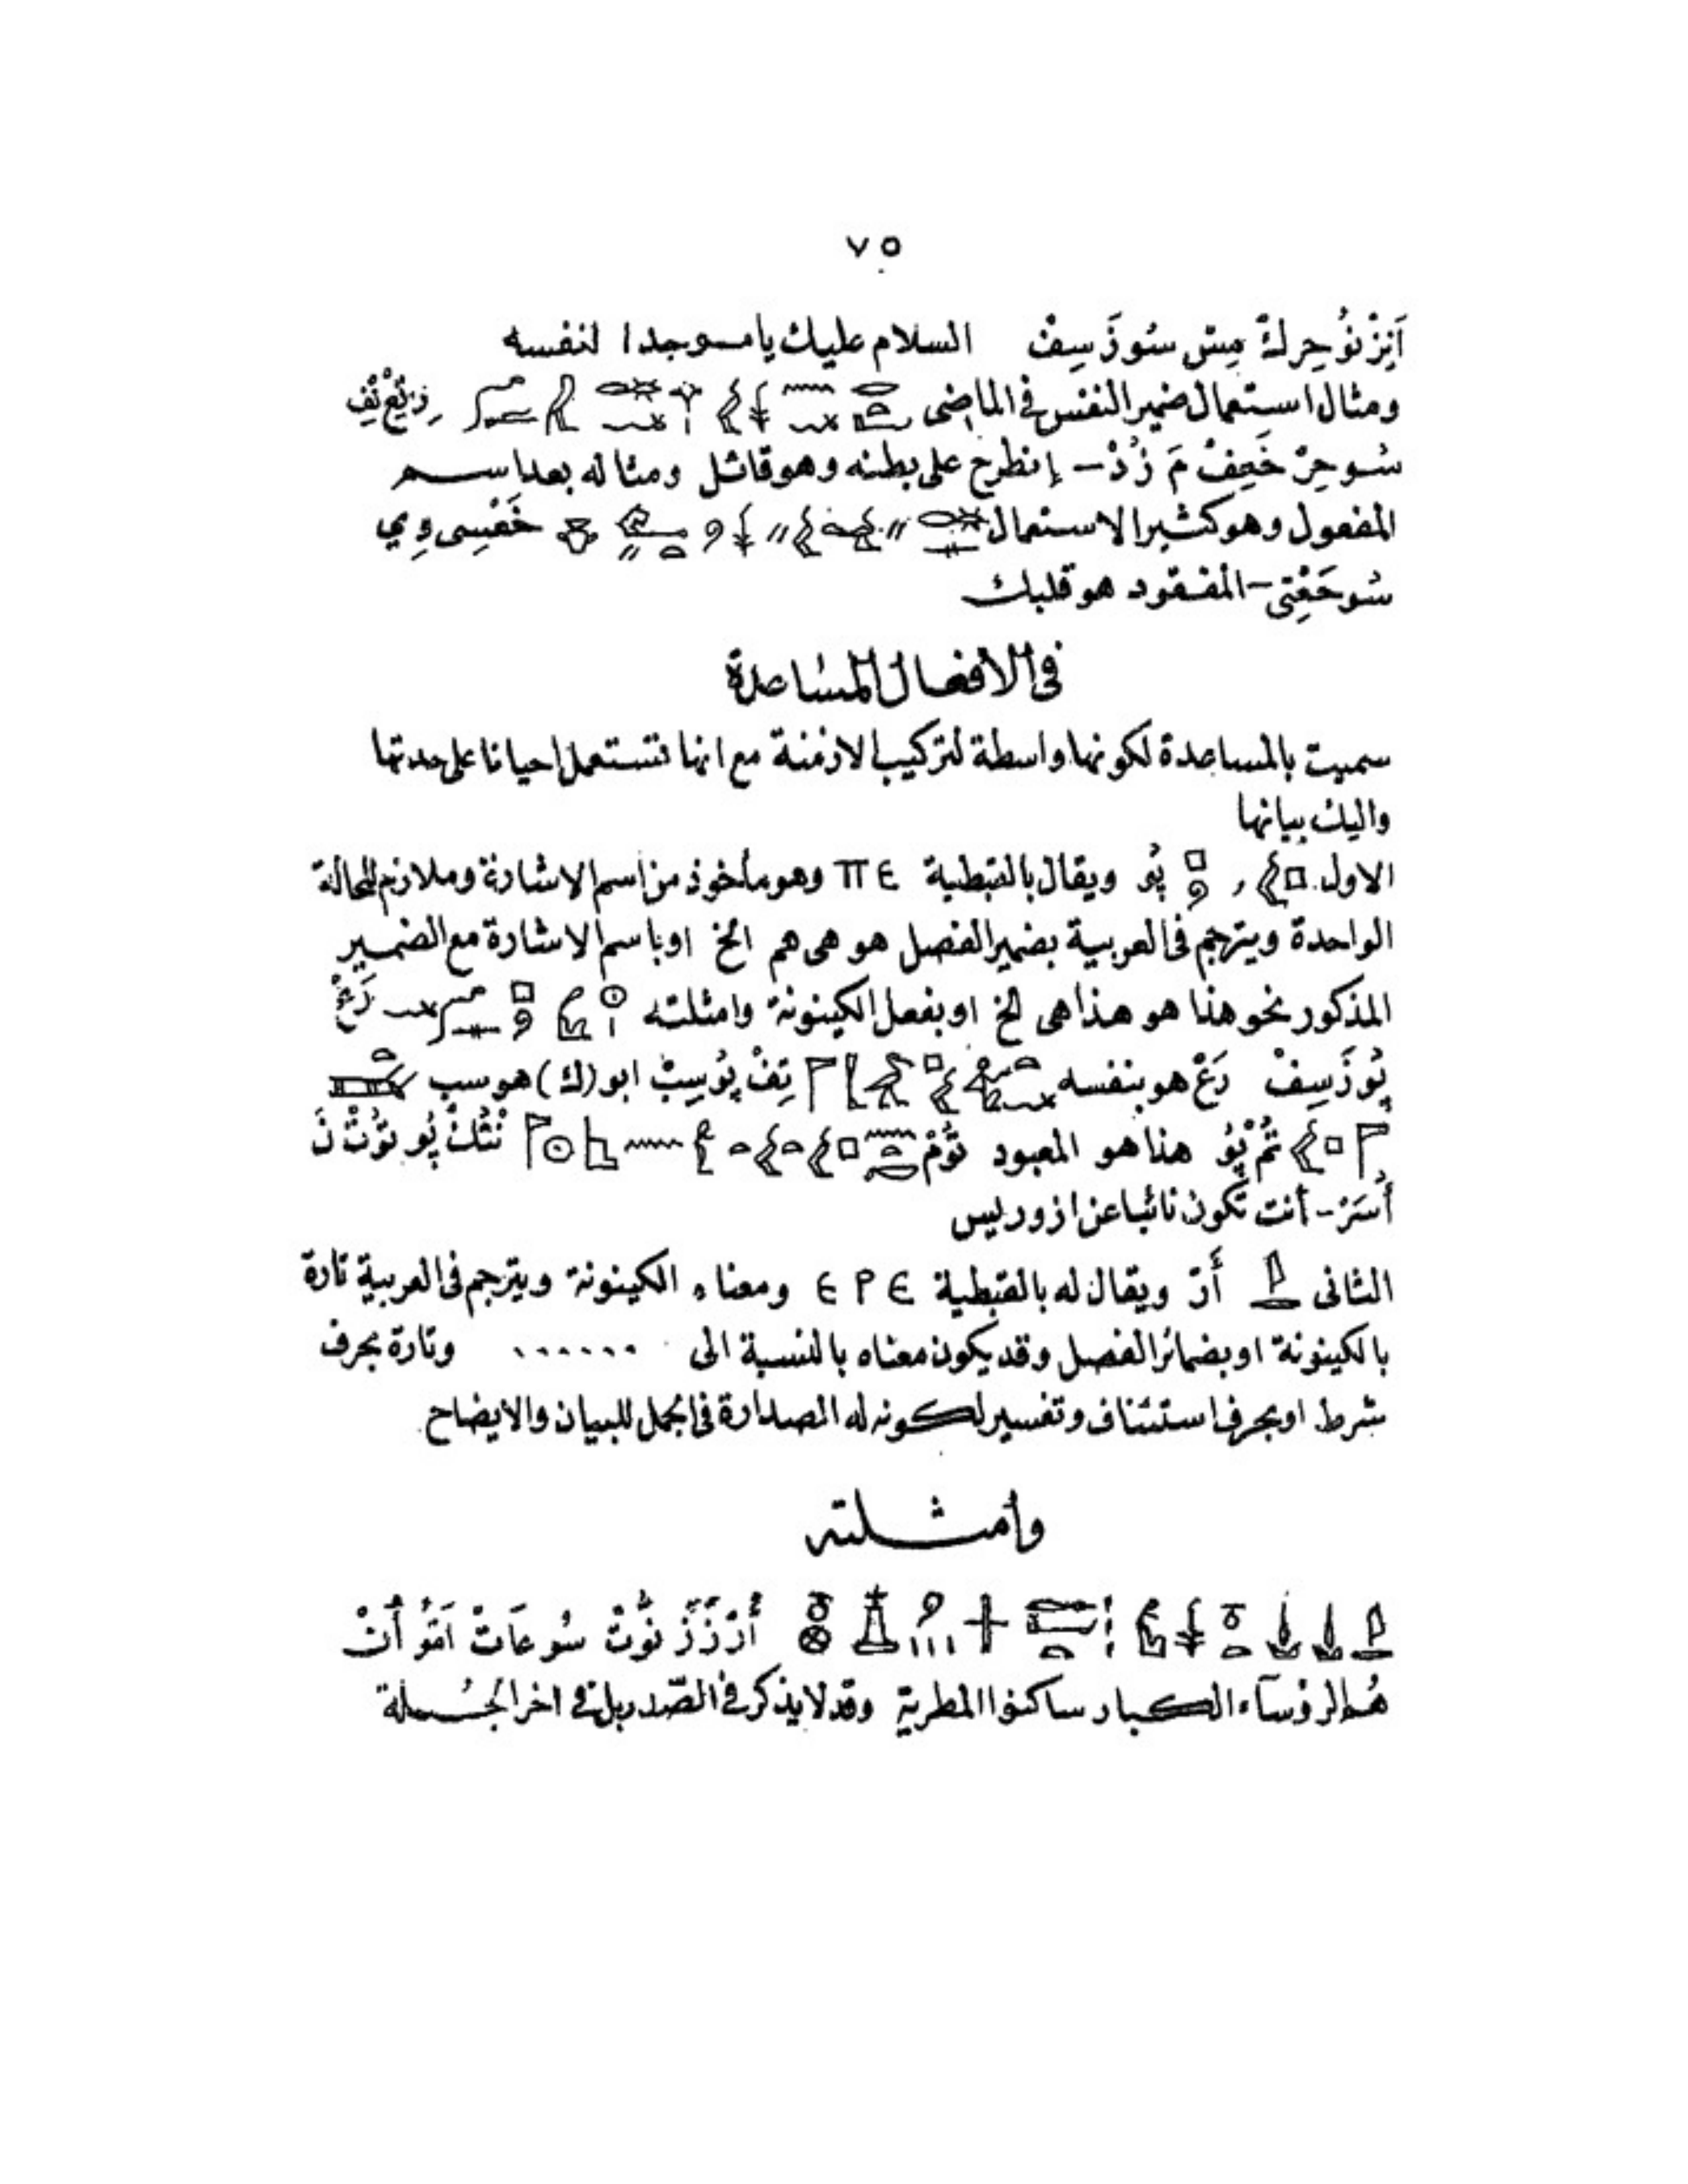 ٧٥
اَنِزْ نُوحِرِكْ مِسْ سُوزَسِفْ السلام عليك ياموجدا لنفسه
ومثال استعمال ضمير النفس فى الماضى
سُو حِرْ خَعِفْ مَ زُدْ - إنطرح على بطنه وهو قائل ومثاله بعد اسم
المفعول وهو كثير الاستعمال خَفْسِى وِي
سُو حَعْتِى - المفقود هو قلبك
فى الافعال المساعدة
سميت بالمساعدة لكونها واسطة لتركيب الازمنة مع انها تستعمل احيانا على حدتها
واليك بيانها
الاول ، پُو ويقال بالقبطية ⲡⲉ وهو مأخوذ من اسم الاشارة وملازم للحالة
الواحدة ويترجم فى العربية بضمير الفصل هو هى هم الخ او باسم الاشارة مع الضمير
المذكور نحو هذا هو هذا هى الخ او بفعل الكينونة وامثلته رَعْ
پُوزَسِفْ رَعْ هو بنفسه تِفْ پُو سِبْ ابو (ك) هو سب
تُمْ پُو هذا هو المعبود تُومْ نْتُكْ پُو تُوتْ نَ
أُسَرْ - أنت تكون نائبا عن ازوريس
الثانى أَرْ ويقال له بالقبطية ⲉⲣⲉ ومعناه الكينونة ويترجم فى العربية تارة
بالكينونة او بضمائر الفصل وقد يكون معناه بالنسبة الى ...... وتارة بحرف
شرط او بحرف استئناف وتفسير لكونه له الصدارة فى الجمل للبيان والايضاح
وأمثلته
أُرْزَزَ نُوتْ سُو عَاتْ اَمُو أُنْ
هُم الرؤسآء الكبار ساكنوا المطرية وقد لا يذكر فى الصّدر بل فى اخر الجُملة